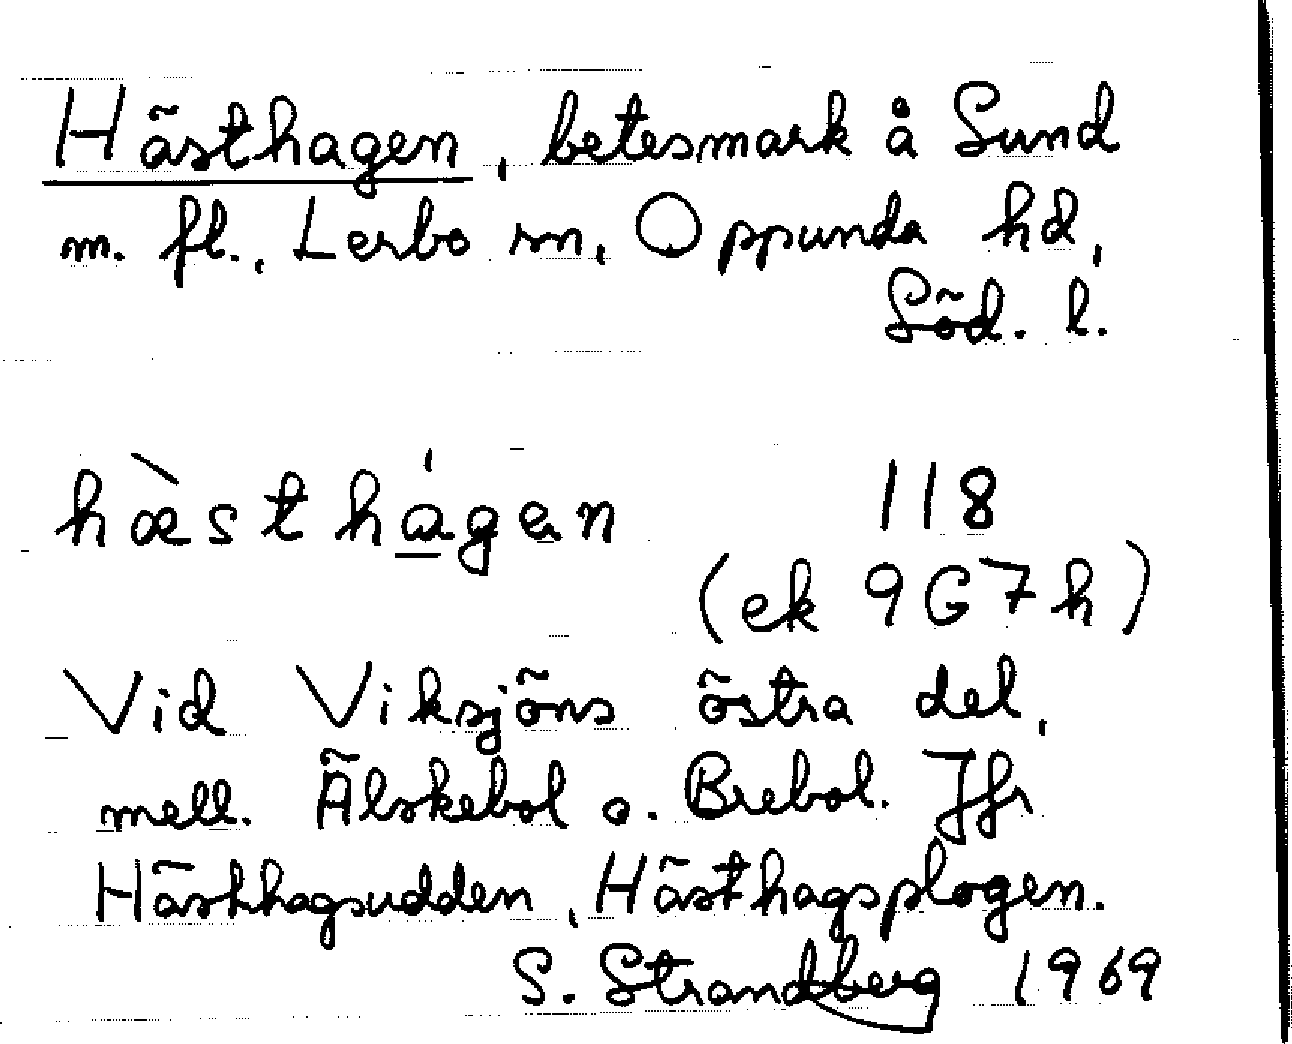 Hästhagen, betesmark å Sund
m. fl., Lerbo sn, Oppunda hd,
Söd. l.
hæ̀sthágen 118
(ek 9G7h)
Vid Viksjöns östra del,
mell. Älskebol o. Brebol. Jfr
Hästhagsudden, Hästhagsplogen.
S. Strandberg 1969